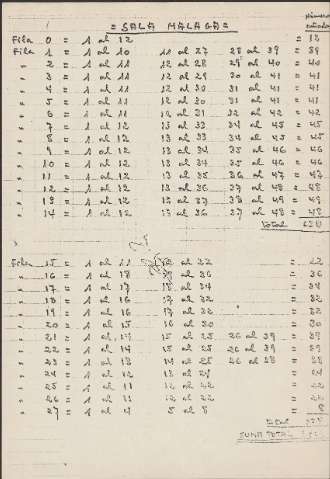 número
= SALA MALAGA =
Fila 0 = 1 al 12 = 12
Fila 1 = 1 al 10 11 al 27 28 al 39 = 39
" 2 = 1 al 11 12 al 28 29 al 40 = 40
" 3 = 1 al 11 12 al 29 30 al 41 = 41
" 4 = 1 al 11 12 al 30 31 al 41 = 41
" 5 = 1 al 11 12 al 30 31 al 41 = 41
" 6 = 1 al 11 12 al 31 32 al 42 = 42
" 7 = 1 al 12 13 al 33 34 al 45 = 45
" 8 = 1 al 12 13 al 33 34 al 45 = 45
" 9 = 1 al 12 13 al 34 35 al 46 = 46
" 10 = 1 al 12 13 al 34 35 al 46 = 46
" 11 = 1 al 12 13 al 35 36 al 47 = 47
" 12 = 1 al 12 13 al 36 37 al 48 = 48
" 13 = 1 al 12 13 al 37 38 al 49 = 49
" 14 = 1 al 12 13 al 36 37 al 48 = 48
total
Fila 15 = 1 al 11 12 al 22 = 22
" 16 = 1 al 18 19 al 36 = 36
" 17 = 1 al 17 18 al 34 = 34
" 18 = 1 al 16 17 al 32 = 32
" 19 = 1 al 16 17 al 32 = 32
" 20 = 1 al 15 16 al 30 = 30
" 21 = 1 al 14 15 al 25 26 al 39 = 39
" 22 = 1 al 14 15 al 25 26 al 39 = 39
" 23 = 1 al 13 14 al 25 26 al 38 = 38
" 24 = 1 al 12 13 al 24 = 24
" 25 = 1 al 11 12 al 22 = 22
" 26 = 1 al 11 12 al 22 = 22
" 27 = 1 al 4 5 al 8 = 8
total
SUMA TOTAL